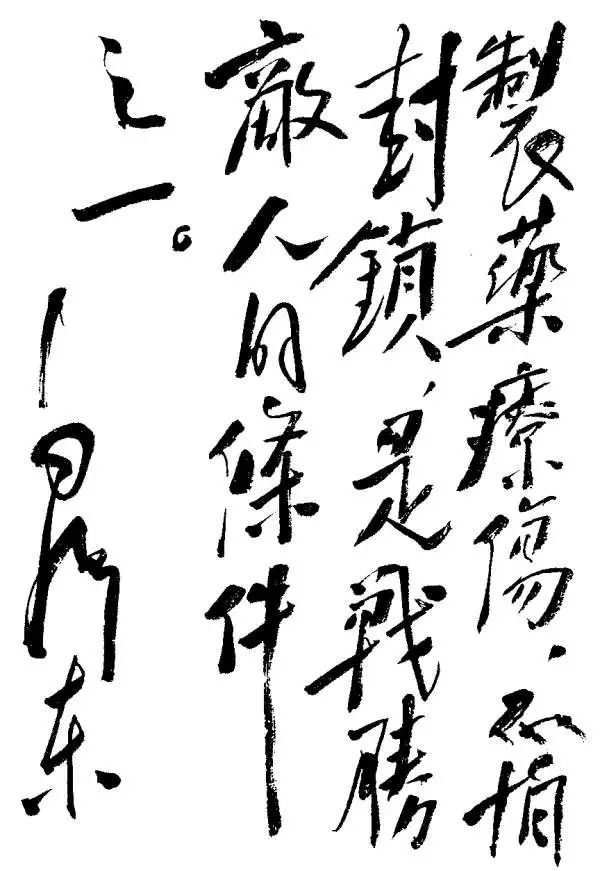 製藥療傷、不怕
封鎖、是戰勝
敵人的條件
之一。
毛澤东